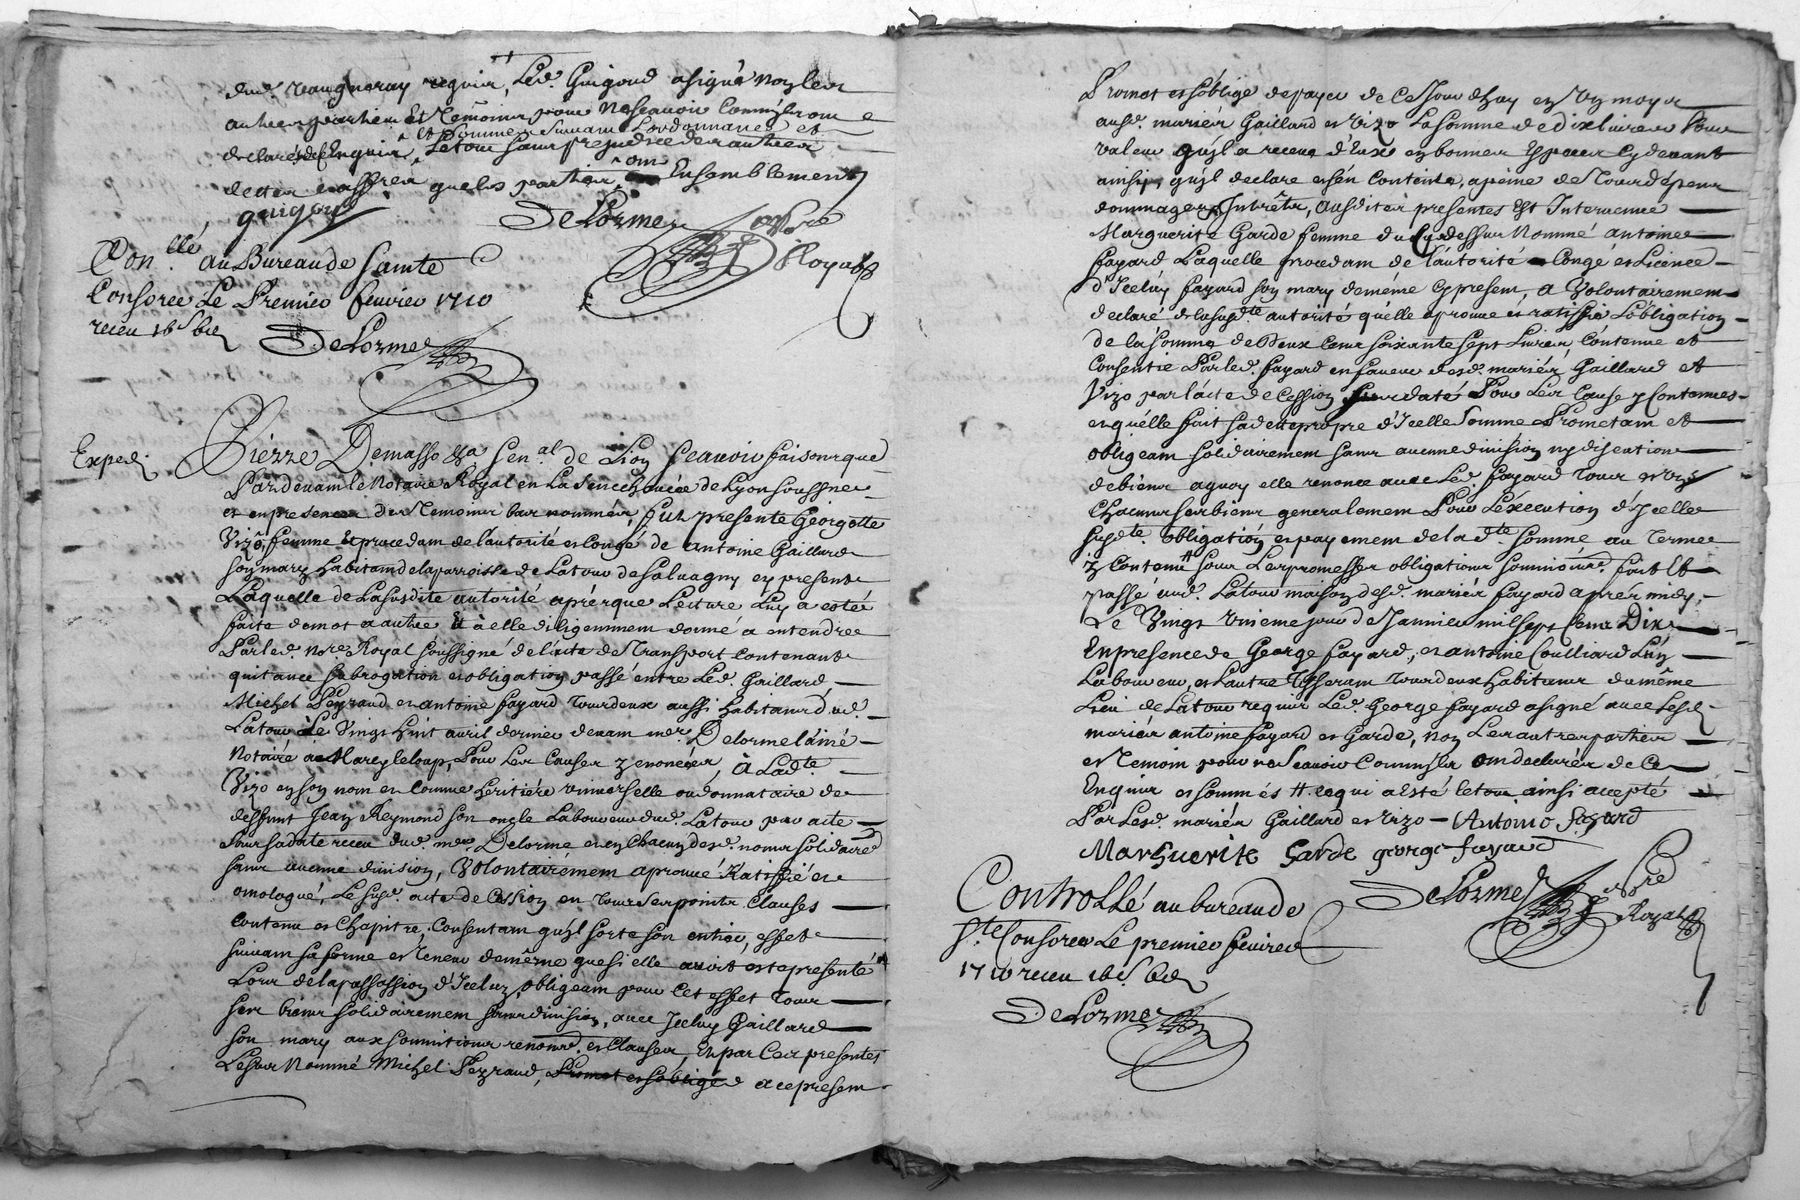 requis, Led. Guigoud asigné non les
autres parties Et Temoins pour Nescavoir comme ils ont
et sommes suivant Lordonnance et
declaré de ce Enquis, Letout sans prejudice des autres
quelles parties ont Ensemblement
guigou
DeLorme
no.re Royal
Con.llé au Bureau de Sainte
Consorce Le Premier fevrier 1710
receu 16 s 6 d
DeLorme
Exped.
Pierre Demasso &a Sen.al de Lion scavoir faisons que
Pardevant le Notaire Royal en La Senechaucée de Lyon soussigné
et en presence des Temoins bas nommés, fut presente Georgette
Vizo, femme et procedam de l'autorité et Congé de antoine Gaillard
son mary habitans de la parroisse de Latour de Salvagny cy presente
Laquelle de La susdite autorité aprés que Lecture Luy a esté
faite de mot a autre et à elle diligemment donné a entendre
Parled. No.re Royal soussigné de l'acte de Transport Contenant
quitance subrogation et obligation passé entre Led. Gaillard
Michel Peyraud et antoine fayard Tous deux aussi habitans dud.
Latour Le Vingt huit avril dernier devant me. Delorme l'ainé
Notaire a Marcy le loup, Pour Les Causes y enoncées, à Lad.te
Vizo en son nom et Comme heritiére universelle ou donnataire de
deffunt Jean Reymond son oncle Laboureur dud. Latour par acte
sous sa date receu dud. me. Delorme et en Chacun desd. noms solidaire
sans aucune division, Volontairement aprouvé Ratiffié et
omologué, Le susd. acte de Cession en Tous ses points Clauses
Contenu et Chapitre, Consentant qu'il sorte son entier effet
suivant sa forme et Teneur de mesme que si elle avoit esté presenté
Lors de la passassion d'Iceluy, obligeam pour Cet effet Tous
ses biens solidairement sans division, avec Iceluy Gaillard
son mary aux soumissions renond. et Clauses, En par Ces presentes
Le sus Nommé Michel Peyraud, Promet et s'oblige a ce present
Promet et s'oblige de payer de Ce Jour d'huy en Un mois
ausd. mariés Gaillard et Vizo La somme de dix livres Pour
valeur qu'il a receue d'Eux en bonnes Especes Cy devant
ainsy qu'il declare et s'en Contente, a peine de Tous dépens
dommages Interêts, Ausdites presentes Est Intervenue
Marguerite Garde femme du Cy dessus Nommé antoine
fayard Laquelle procedam de l'autorité Congé et Licence
d'Iceluy fayard son mary de méme Cy present, a Volontairement
declaré de la susd.te autorité qu'elle aprouve et ratiffie L'obligation
de la somme de Deux Cens soixante sept Livres, Contenue et
Consentie Par led. fayard en faveur desd. mariés Gaillard et
Vizo par l'acte de Cession sus daté Pour Les Cause y Contenues
en quelle fait sa dette propre d'Icelle somme Prometam et
obligeam solidairement sans aucune division ny discution
de biens a quoy elle renonce avec Led. fayard Tous et Un
Chacuns ses biens generalement Pour L'execution d'Icelle
susd.te obligation et payement de la d.te somme au Terme
y Contenu sous Les promesses obligations soumissions fait Et
passé aud. Latour maison desd. mariés fayard aprés midy,
Le Vingt Unieme jour de Janvier mil sept Cent Dix
En presence de George fayard, et antoine Coulliard L'un
Laboureur, et L'autre Tisseram Tous deux habitans du méme
Lieu de Latour requis Led. George fayard a signé avec Lesd.
mariés antoine fayard et Garde, non Les autres parties
et Temoin pour ne scavoir Comme ils ont declarés de Ce
Enquis et sommés. Ce qui a Esté Letout ainsi accepté
Par Lesd. mariés Gaillard et Vizo — Antoine Fayard
Marguerite Garde george fayard
Controllé au bureau de
S.te Consorce Le premier fevrier
1710 receu 16 s 6 d
DeLorme
DeLorme
no.re Royal